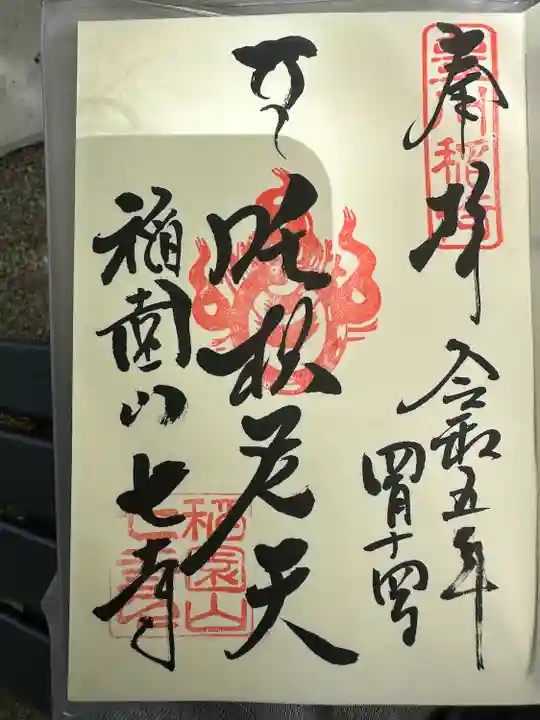 奉拝
豊川稲荷
令和五年
四月十四日
吒枳尼天
稲園山七寺
稲園山
七寺